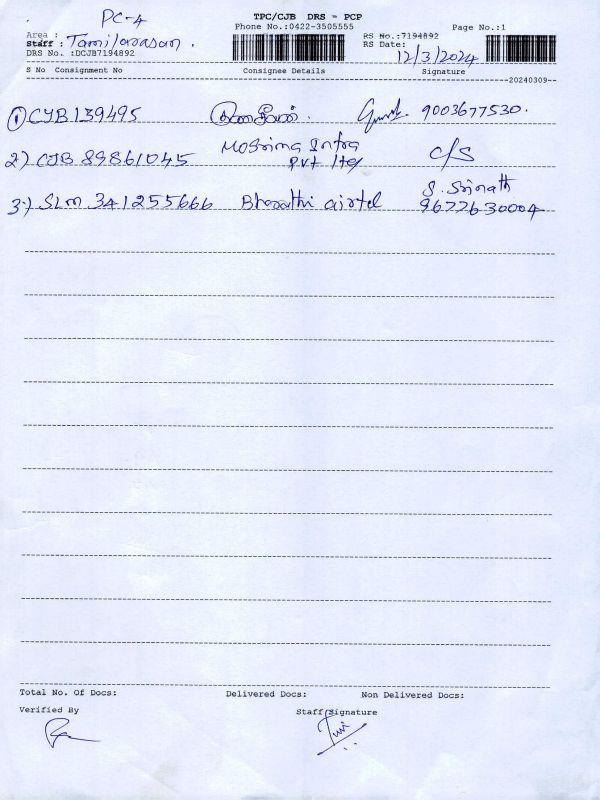 PC-4
TPC/CJB DRS - PCP
Phone No.:0422-3505555
Page No.:1
Area :
Staff : Tamilarasan .
RS No.:7194892
RS Date: 12/3/2024
DRS No. :DCJB7194892
S No Consignment No Consignee Details Signature
20240309
1) CJB 139495 9003677530.
2) CJB 89861045 Infra Pvt c/s
3) SLM 341255666 Bharathi airtel S. Srinath
9677630004
Total No. Of Docs: Delivered Docs: Non Delivered Docs:
Verified By Staff Signature